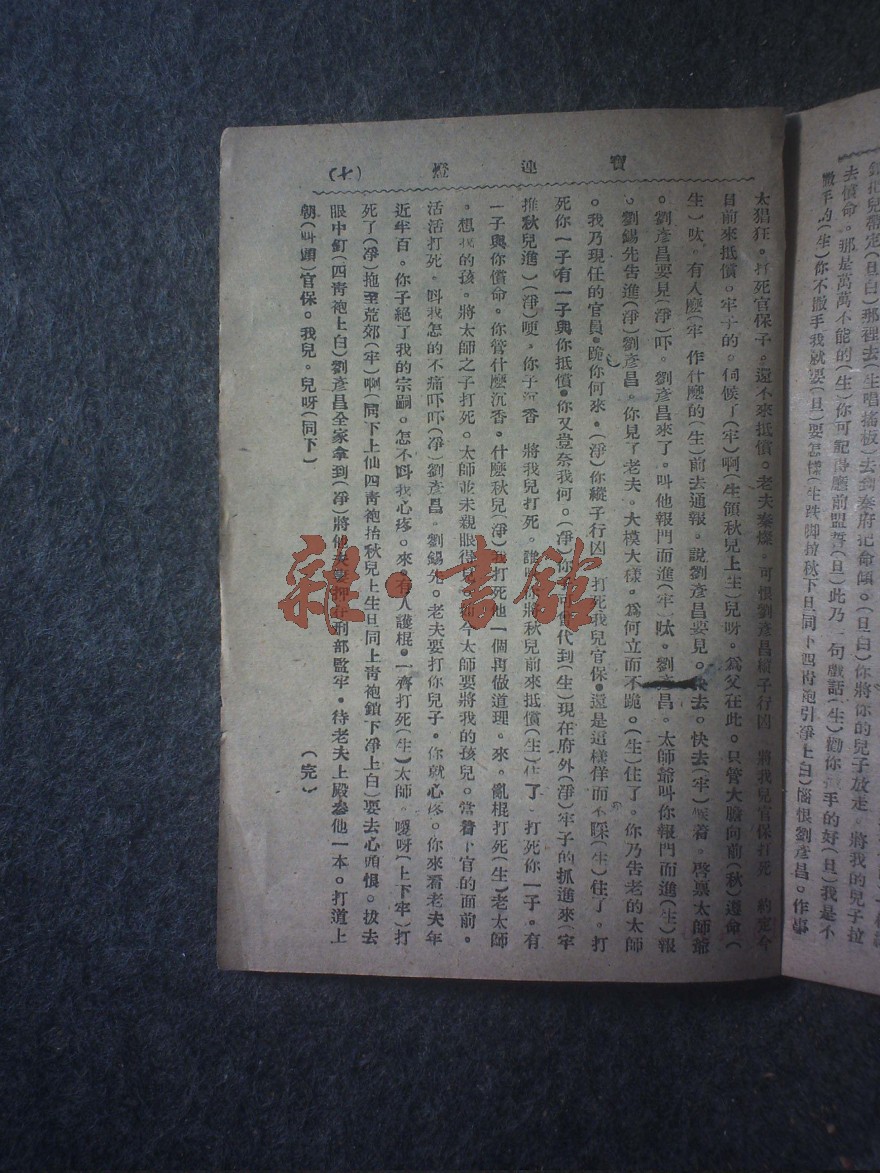 去償命。那是萬萬不能的(生)你可記得廳前盟誓(旦)此乃一句戲話(生)勸你撒手的好(旦)我是不
撒手的(生)你不撒手我就要(旦)要怎樣(生跌脚拉秋下旦同下四靑袍引淨上白)惱恨劉彥昌。作事
寶連燈 (七)
太猖狂。打死官保子。還不來抵償。老夫秦燦。可恨劉彥昌縱子行凶 將我兒官保打死 約定今
日前來抵償。牢子的。伺候了(牢)啊(生領秋兒上生)兒呀。爲父在此。只管大膽向前(秋)遵命(
生)呔。有人麽(牢 作什麽的(生)前去通報。說劉彥昌要見。快去。快去(牢)候着。啓稟太師爺
。劉彥昌要見(淨)吓。劉彥昌來了。叫他報門而進(牢)呔。劉彥昌。太師爺叫你報門而進(生)報
。劉錫先告進(淨)劉彥昌。你見了老夫。大模大樣。爲何立而不跪。(生)住了。你乃告老的太師
。我乃現任的官員。跪你何來。(淨)你縱子行凶 打死我兒官保。還是這樣佯而不睬(生)住了。打
死你一子有一子與你抵償。你又豈奈我何。(淨)你子可曾代到(生)現在府外(淨)牢子的抓進來(牢
推秋兒進)(淨)哽。你子沉香 將我兒打死。誰 將秋兒前來抵償(生)住了。打死你一子。有
一子與你償命。你管什麽沉香。什麽秋兒(淨) 打死他一個再做道理。來。亂棍打死(生)老太師
。想我的孩。將太師之子打死。太師並未親眼得見。 今太師要將我的孩兒。當着下官的面前。
活活打死。呌我怎的不痛吓吓(淨)劉彥昌。劉錫先。老夫要打你兒子。你就心疼。你來看老夫年
近半百。你子絕了我的宗嗣。怎不呌我心疼。來。有人護棍。一齊打死(生)太師。噯呀(上下牢)打
死了(淨)拖至荒郊(牢)啊(同下上仙四靑袍抬秋兒上生旦同上靑袍鎖下淨上白)要去心頭恨。拔去
眼中釘(四靑袍上白)劉彥昌全家拿到(淨)將他夫妻押在刑部監牢。待老夫上殿叅他一本。打道上
朝(呌頭)官保。我兒。兒呀(同下) (完)
雜·書館